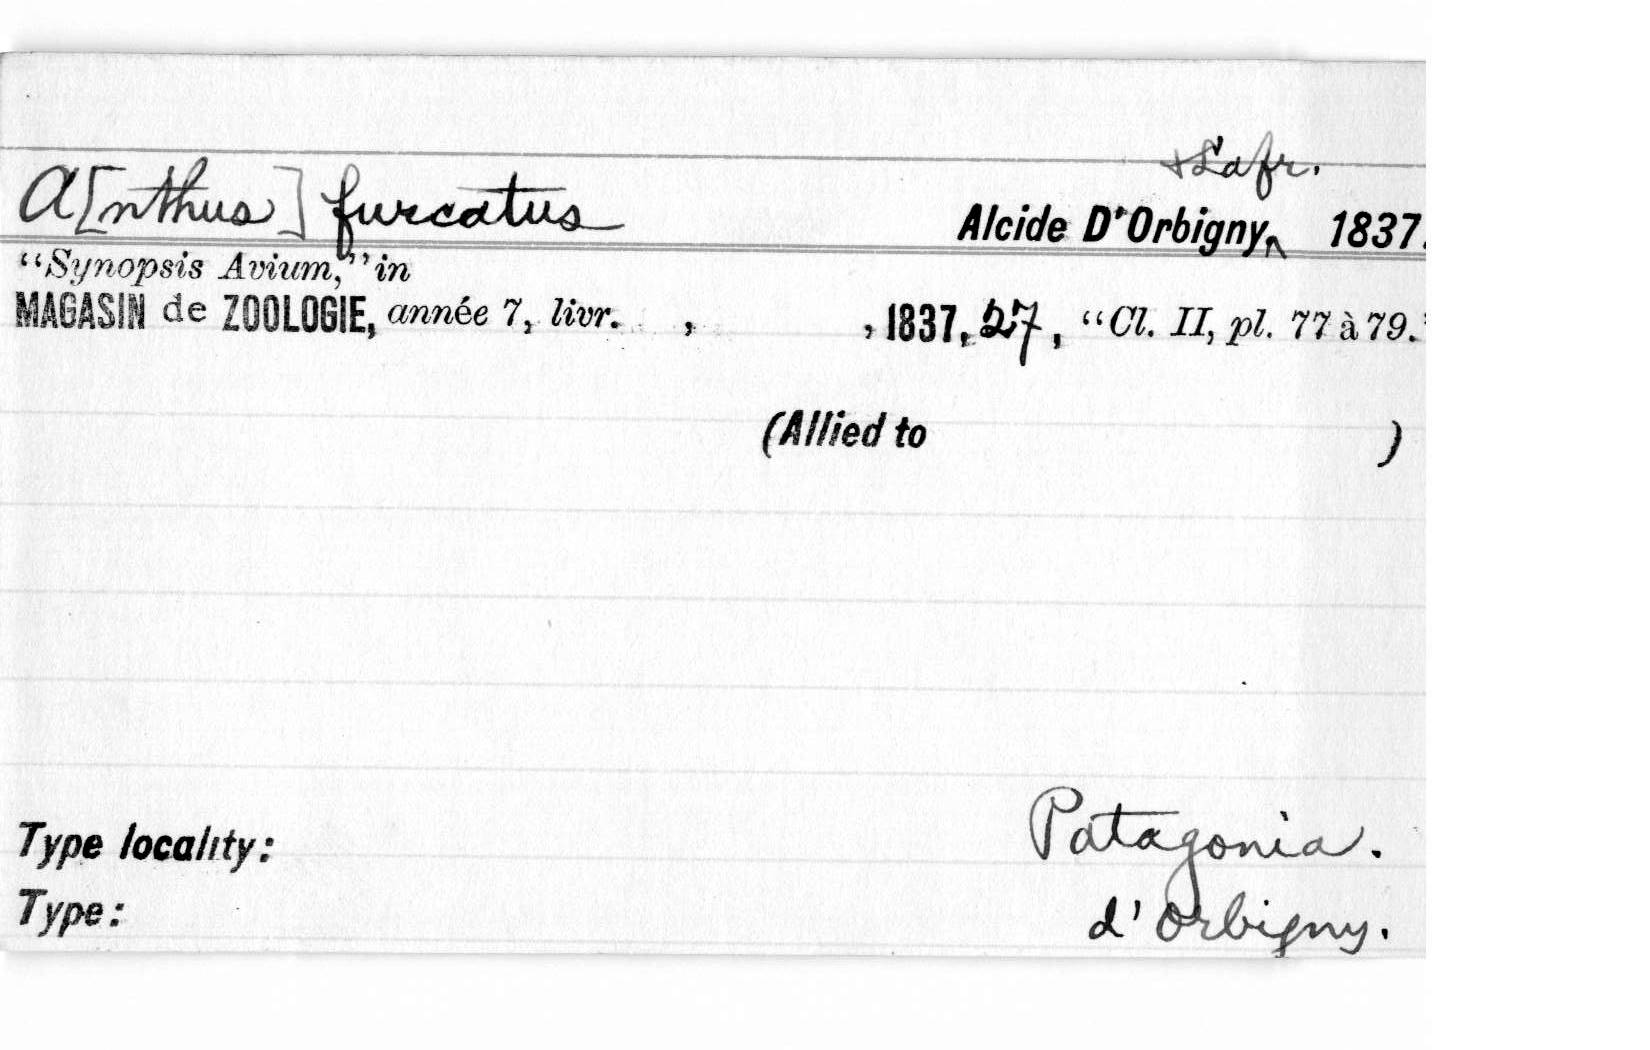 & Lafr.
A[nthus] furcatus Alcide D'Orbigny, 1837.
“Synopsis Avium,” in
MAGASIN de ZOOLOGIE, année 7, livr. , , 1837, 27, “Cl. II, pl. 77 à 79.”
(Allied to )
Type locality: Patagonia.
Type: d'Orbigny.